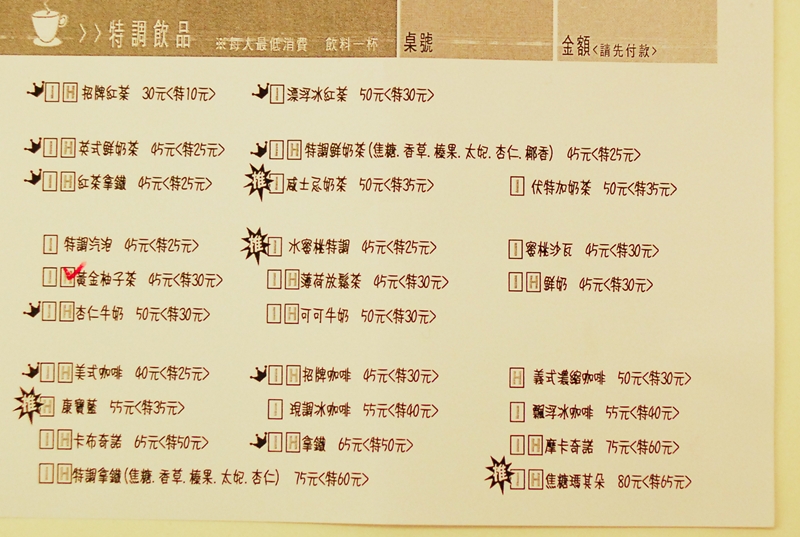 >>特調飲品 ※每人最低消費 飲料一杯 桌號 金額<請先付款>
I H 招牌紅茶 30元<特10元> I 漂浮冰紅茶 50元<特30元>
I H 英式鮮奶茶 45元<特25元> I H 特調鮮奶茶(焦糖.香草.榛果.太妃.杏仁.椰香) 45元<特25元>
I H 紅茶拿鐵 45元<特25元> 推 I 威士忌奶茶 50元<特35元> I 伏特加奶茶 50元<特35元>
I 特調汽泡 45元<特25元> 推 I 水蜜桃特調 45元<特25元> I 蜜桃沙瓦 45元<特30元>
I H 黃金柚子茶 45元<特30元> I H 薄荷放鬆茶 45元<特30元> I H 鮮奶 45元<特30元>
I H 杏仁牛奶 50元<特30元> I H 可可牛奶 50元<特30元>
I H 美式咖啡 40元<特25元> I H 招牌咖啡 45元<特30元> H 義式濃縮咖啡 50元<特30元>
推 H 康寶藍 55元<特35元> I 現調冰咖啡 55元<特40元> I 飄浮冰咖啡 55元<特40元>
I H 卡布奇諾 65元<特50元> I H 拿鐵 65元<特50元> I H 摩卡奇諾 75元<特60元>
I H 特調拿鐵(焦糖.香草.榛果.太妃.杏仁) 75元<特60元> 推 I H 焦糖瑪其朵 80元<特65元>